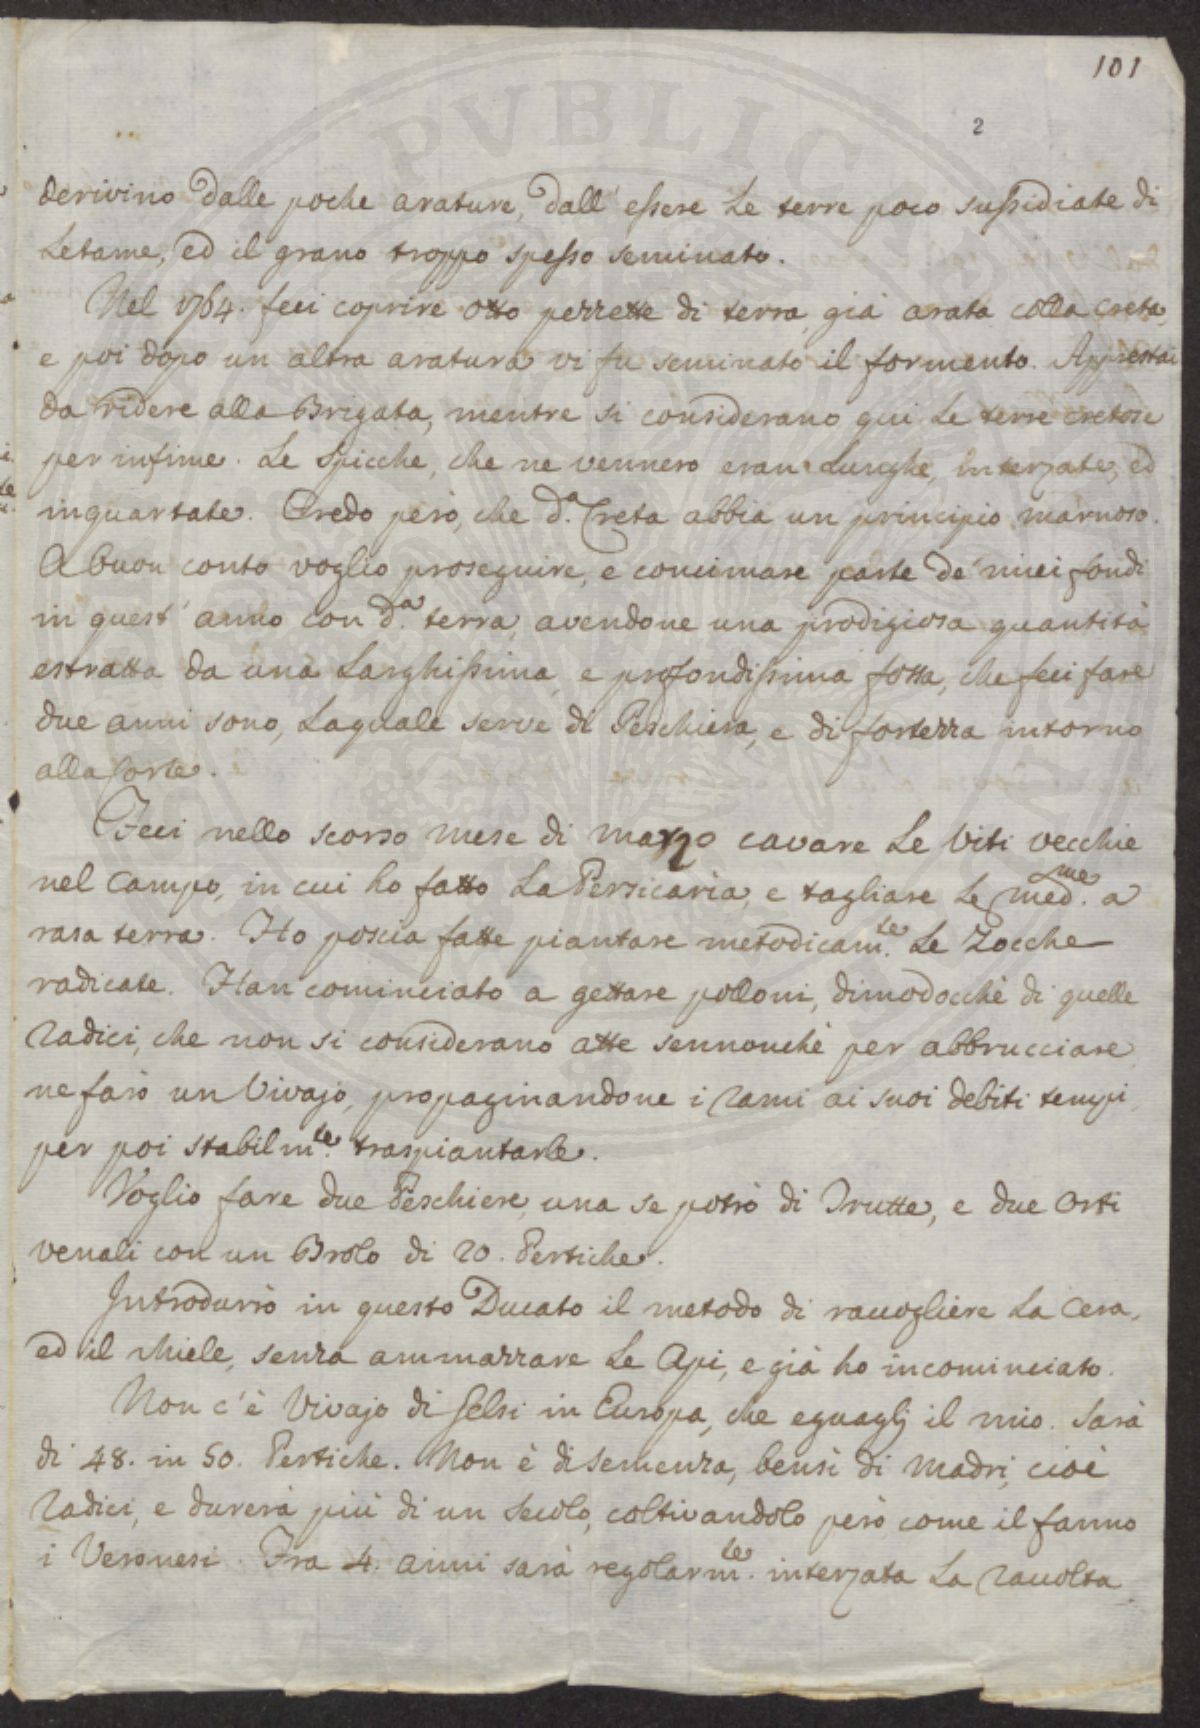 101
2
derivino dalle poche arature, dall' essere le terre poco sussidiate di
Letame, ed il grano troppo spesso seminato.
Nel 1764. feci coprire otto pezzette di terra già arata colla creta,
e poi dopo un altra aratura vi fu seminato il formento. Apprestai
da ridere alla Brigata, mentre si considerano qui le terre cretose
per infime. Le spicche, che ne vennero eran lunghe, interzate, ed
inquartate. Credo però, che d.ª Creta abbia un principio marnoso.
A buon conto voglio proseguire, e concimare parte de' miei fondi
in quest' anno con d.ª terra, avendone una prodigiosa quantità
estratta da una larghissima, e profondissima fossa, che feci fare
due anni sono, laquale serve di Peschiera, e di fortezza intorno
alla Corte.
Feci nello scorso mese di marzo cavare le Viti vecchie
nel Campo, in cui ho fatto la Persicaria, e tagliare le med.me a
rasa terra. Ho poscia fatte piantare metodicam.te le Zocche
radicate. Han cominciato a gettare polloni, dimodocchè di quelle
radici, che non si considerano atte sennonchè per abbrucciare,
ne farò un Vivajo, propaginandone i rami ai suoi debiti tempi
per poi stabilm.te traspiantarle.
Voglio fare due Peschiere, una se potrò di Trutte, e due Orti
venali con un Brolo di 20. Pertiche.
Introdurrò in questo Ducato il metodo di raccogliere la Cera,
ed il Miele, senza ammazzare le Api, e già ho incominciato.
Non c'è Vivajo di Gelsi in Europa, che eguaglj il mio. Sarà
di 48. in 50. Pertiche. Non è di semenza, bensì di Madri, cioè
radici, e durerà più di un secolo, coltivandolo però come il fanno
i Veronesi. Fra 4. anni sarà regolarm.te interzata la raccolta
PUBLIC